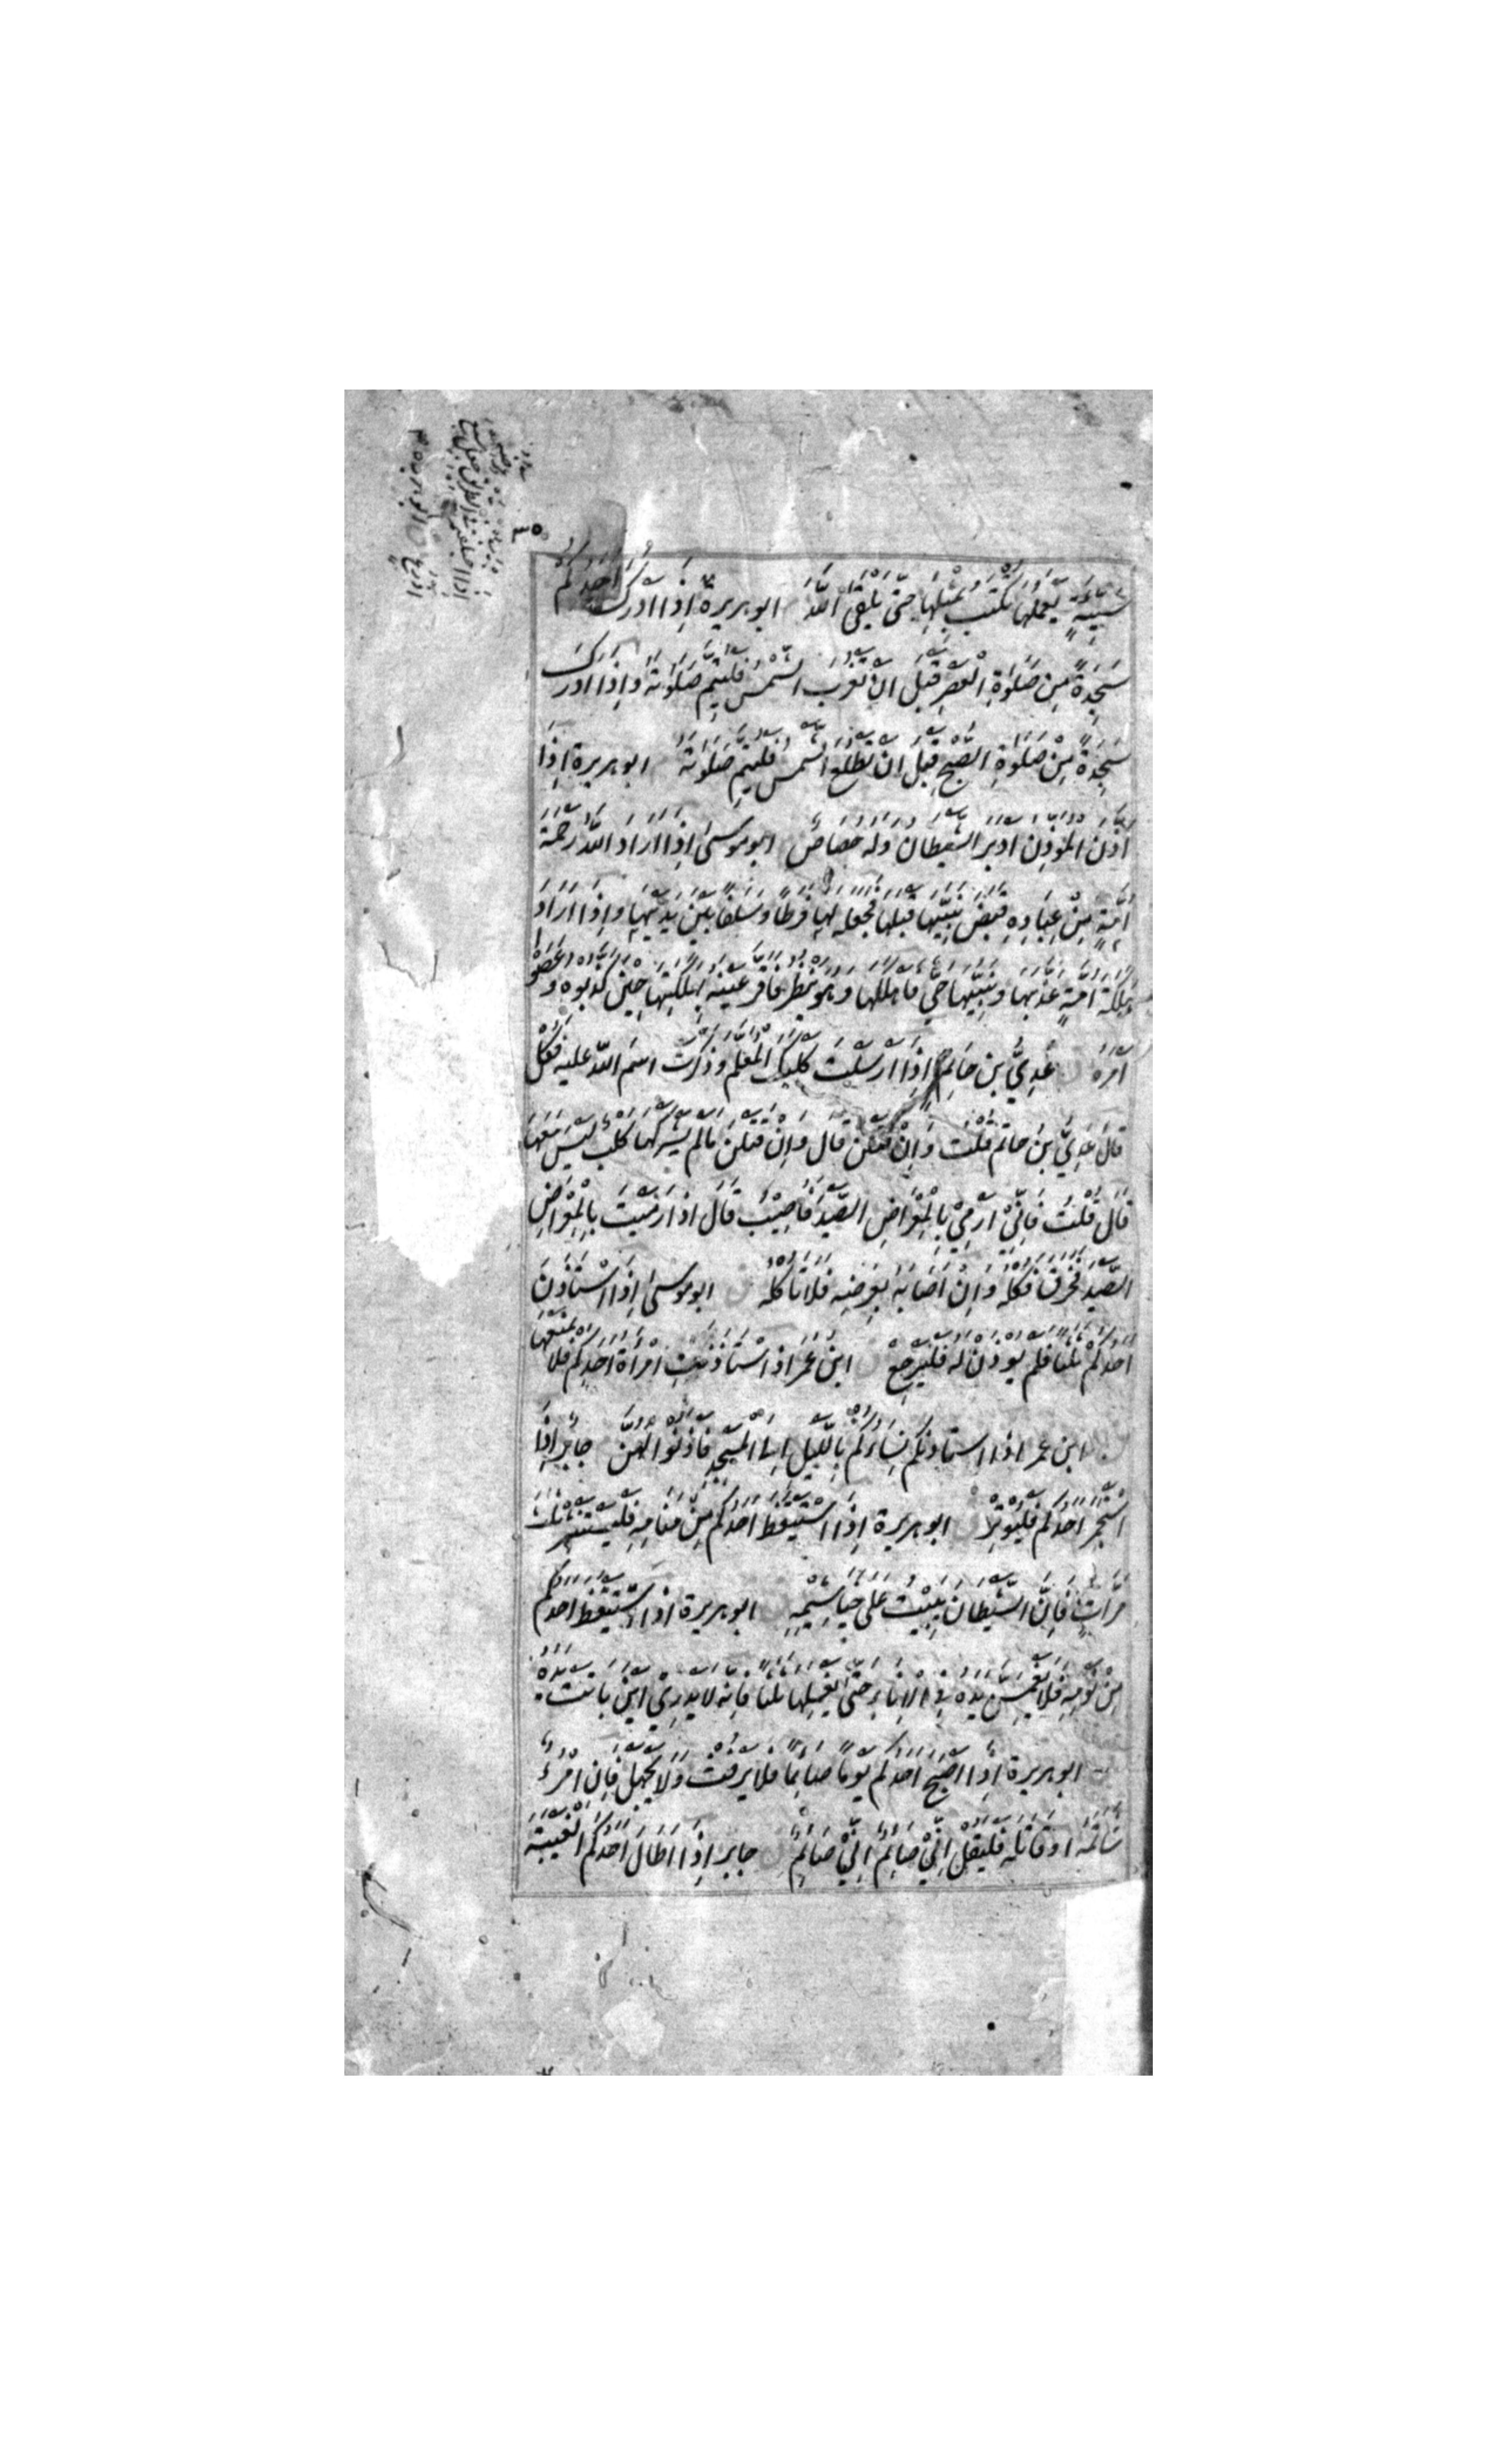 سَيِّئَةٍ يَعْمَلُهَا تُكْتَبُ بِمِثْلِهَا حَتّى يَلْقَى اللهَ ابو هريرة اِذَا اَدْرَكَ اَحَدُكُمْ
سَجْدَةً مِنْ صَلٰوةِ الْعَصْرِ قَبْلَ اَنْ تَغْرُبَ الشَّمْسُ فَلْيُتِمَّ صَلٰوتَهُ وَاِذَا اَدْرَكَ
سَجْدَةً مِنْ صَلٰوةِ الصُّبْحِ قَبْلَ اَنْ تَطْلُعَ الشَّمْسُ فَلْيُتِمَّ صَلٰوتَهُ ابو هريرة اِذَا
اَذَّنَ الْمُؤَذِّنُ اَدْبَرَ الشَّيْطَانُ وَلَهُ حُصَاصٌ ابو موسىٰ اِذَا اَرَادَ اللهُ رَحْمَةَ
اُمَّةٍ مِنْ عِبَادِهِ قَبَضَ نَبِيَّهَا قَبْلَهَا فَجَعَلَهُ لَهَا فَرَطًا وَسَلَفًا بَيْنَ يَدَيْهَا وَاِذَا اَرَادَ
هَلَكَةَ اُمَّةٍ عَذَّبَهَا وَنَبِيُّهَا حَيٌّ فَاَهْلَكَهَا وَهُوَ يَنْظُرُ فَاَقَرَّ عَيْنَهُ بِهَلَكَتِهَا حِيْنَ كَذَّبُوهُ وَعَصَوْا
اَمْرَهُ عَدِيُّ بن حَاتِمٍ اِذَا اَرْسَلْتَ كَلْبَكَ الْمُعَلَّمَ وَذَكَرْتَ اسْمَ اللهِ عليه فَكُلْ
قَالَ عَدِيُّ بْنُ حاتم قُلْتُ وَاِنْ قَتَلْنَ قَالَ وَاِنْ قَتَلْنَ مَالَمْ يَشْرَكْهَا كَلْبٌ لَيْسَ مَعَهَا
قَالَ قُلْتُ فَاِنِّيْ اَرْمِيْ بِالْمِعْرَاضِ الصَّيْدَ فَاُصِيْبُ قَالَ اِذَا رَمَيْتَ بِالْمِعْرَاضِ
الصَّيْدَ فَخَرَقَ فَكُلْهُ وَاِنْ اَصَابَهُ بِعَرْضِهِ فَلَا تَأكُلْهُ ابو موسىٰ اِذَا اسْتَأذَنَ
اَحَدُكُمْ ثَلٰثًا فَلَمْ يُوْذَنْ لَهُ فَلْيَرْجِعْ ابنُ عُمَرَ اذا اسْتَأذَنَتِ امْرَأَةُ اَحَدِكُم فَلَا يَمْنَعْهَا
ابن عمر اذا استاذنكم نِسَاؤُكُمْ بِاللَّيْلِ اِلَى الْمَسْجِدِ فَاْذَنُوْا لَهُنَّ جابِر اِذَا
اسْتَجْمَرَ اَحَدُكُم فَلْيُوْتِرْ ابو هريرة اِذَا اسْتَيْقَظَ اَحَدُكُم مِنْ مَنَامِهِ فَلْيَسْتَنْثِرْ ثَلٰثَ
مَرَّاتٍ فَاِنَّ الشَّيْطَانَ يَبِيْتُ عَلٰى خَيَاشِيْمِهِ ابو هريرة اذا اسْتَيْقَظَ اَحَدُكُم
مِنْ نَوْمِهِ فَلَا يَغْمِسْ يَدَهُ فِي الْاِنَاءِ حَتّى يَغْسِلَهَا ثَلٰثًا فَاِنَّهُ لَا يَدْرِيْ اَيْنَ بَاتَتْ يَدُهُ
ابو هريرة اِذَا اَصْبَحَ اَحَدُكُم يَوْمًا صَائِمًا فَلَا يَرْفُثْ وَلَا يَجْهَلْ فَاِنِ امْرُءٌ
شَاتَمَهُ اَوْ قَاتَلَهُ فَلْيَقُلْ اِنِّيْ صَائِمٌ اِنِّيْ صَائِمٌ جابر اِذَا اَطَالَ اَحَدُكُمُ الْغَيْبَةَ